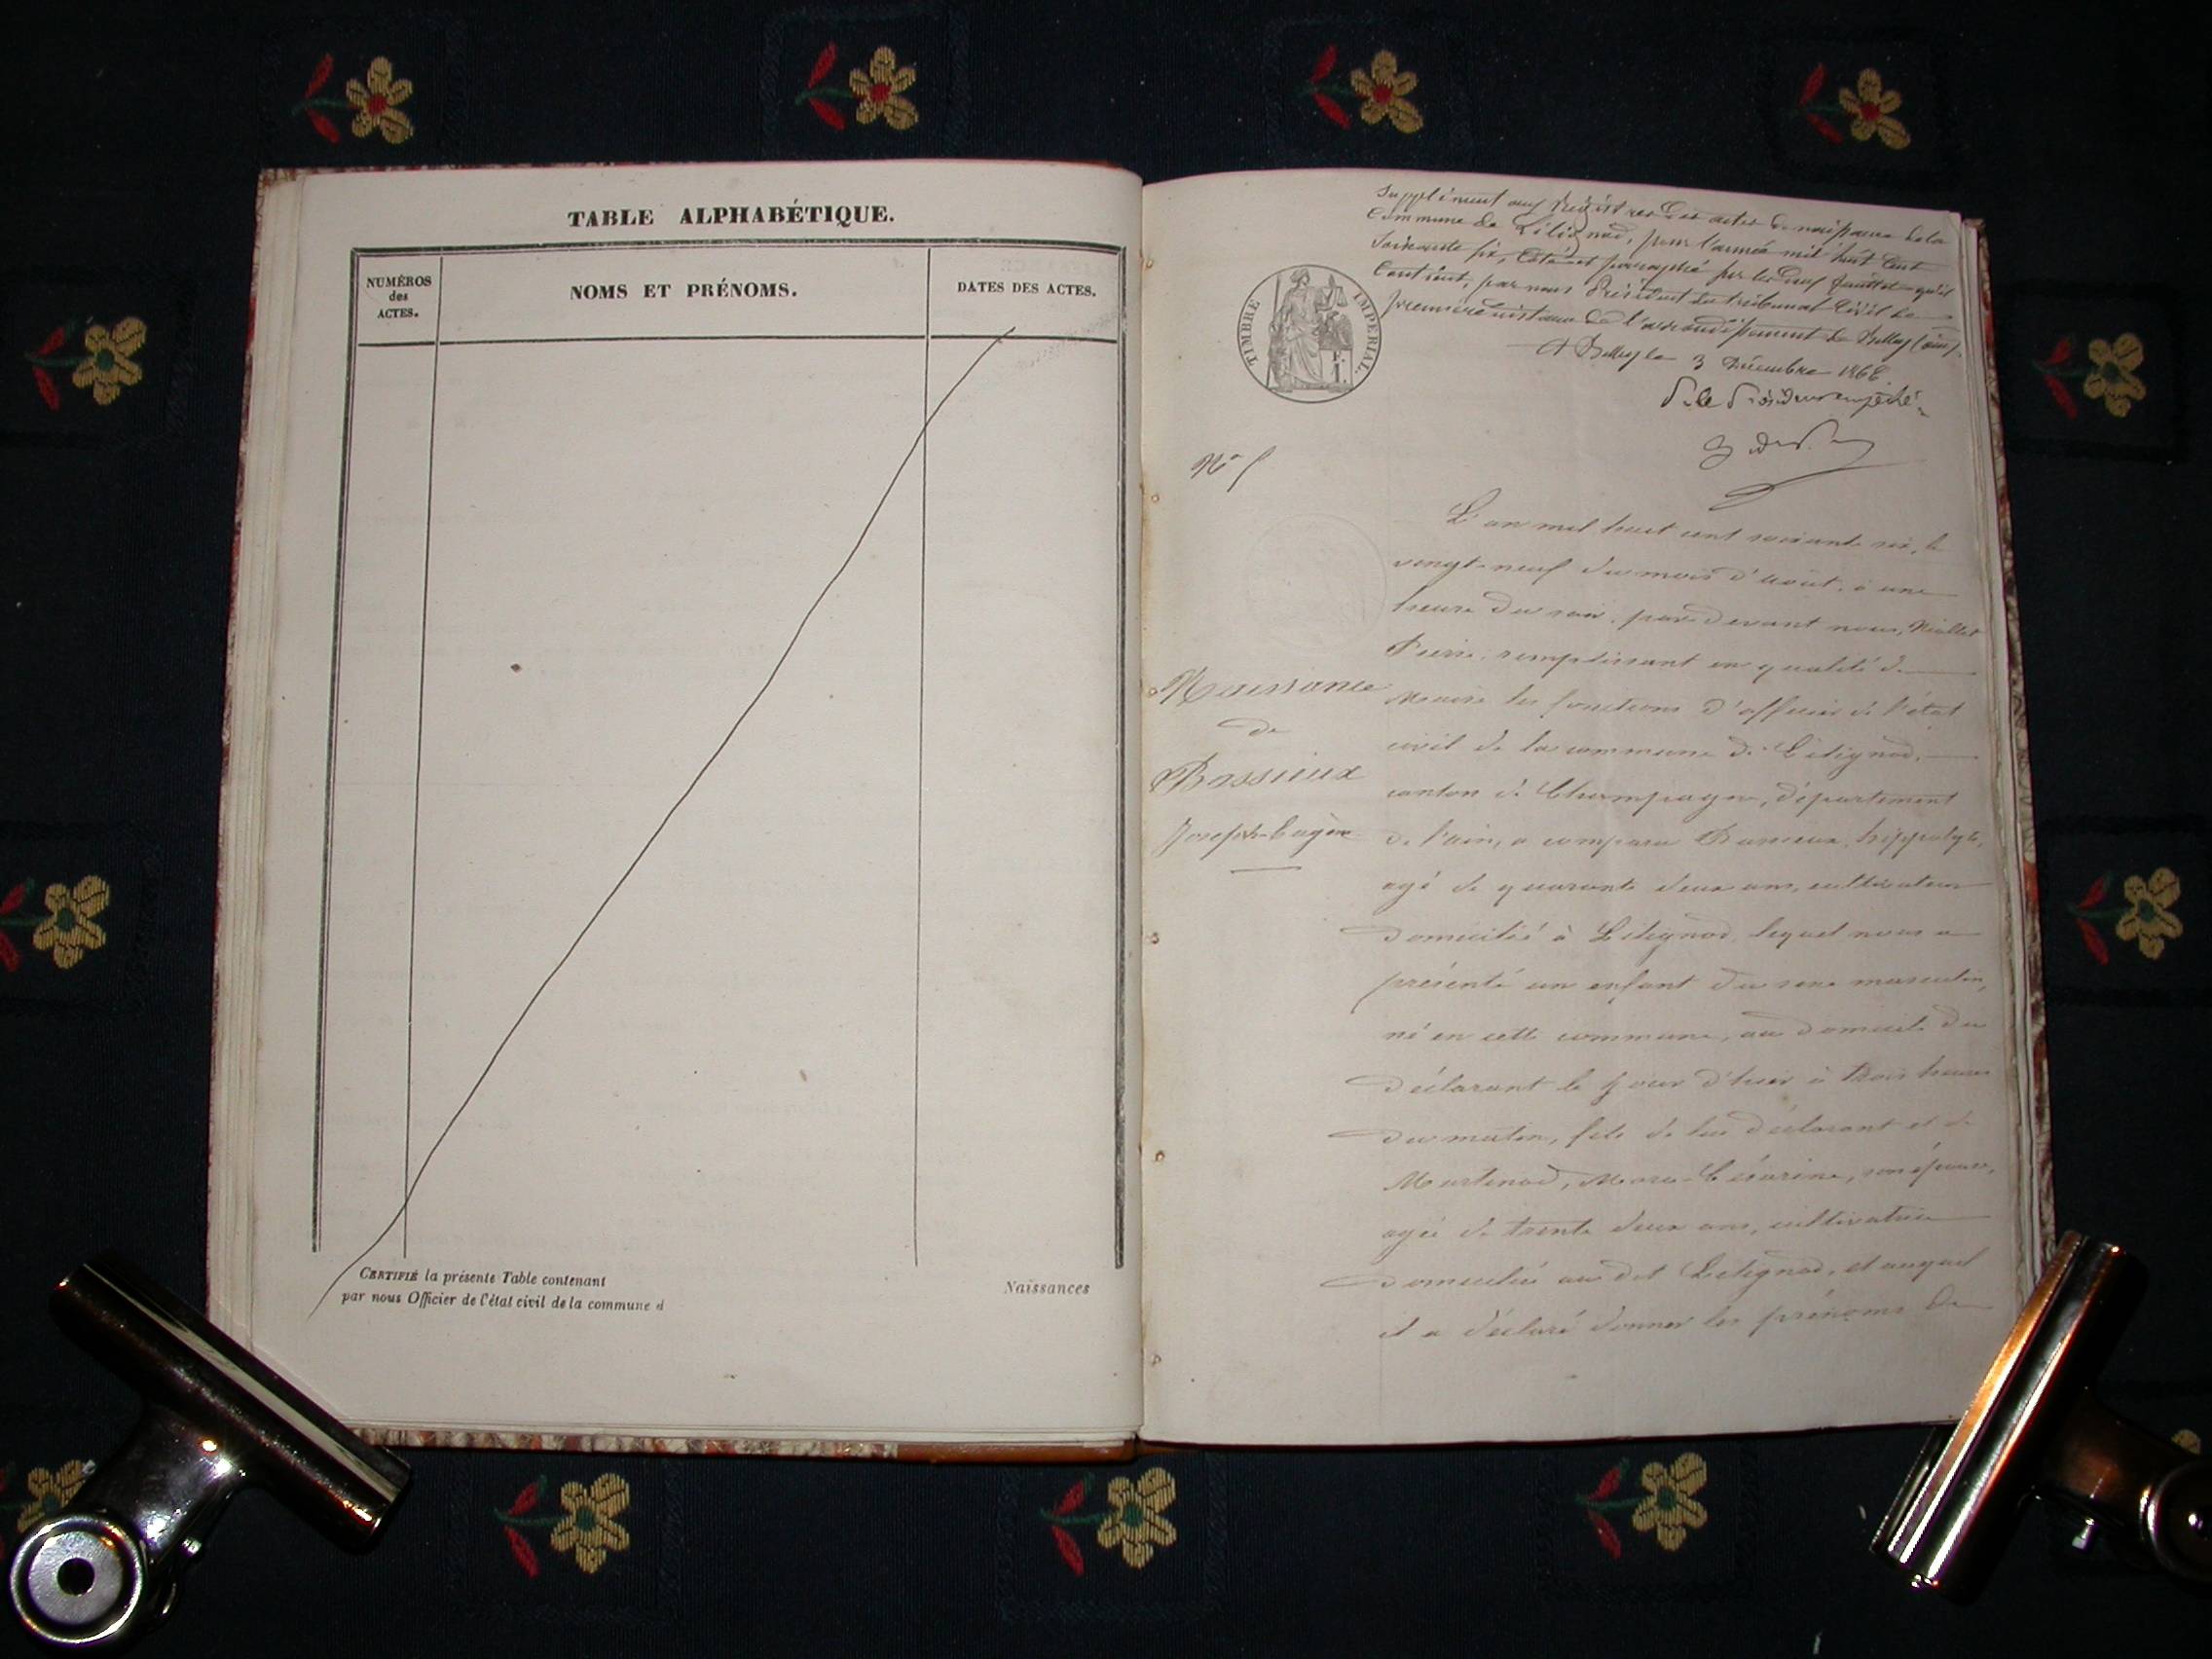 TABLE ALPHABÉTIQUE.
NUMÉROS
des
ACTES.
NOMS ET PRÉNOMS.
DATES DES ACTES.
CERTIFIÉ la présente Table contenant
par nous Officier de l'état civil de la commune d
Naissances
Supplément aux Registres des actes de naissance de la
Commune de Lilignod, pour l'année mil huit cent
soixante six, Coté et paraphé par les deux feuillets qu'il
Contient, par nous Président du tribunal Civil de
première instance de l'arrondissement de Belley (ain).
A Belley le 3 Décembre 1866.
P. le Président empêché
TIMBRE IMPÉRIAL.
N°
L'an mil huit cent soixante six, le
vingt-neuf du mois d'août, à une
heure du soir, par devant nous,
Pierre, remplissant en qualité de
Maire les fonctions d'officier de l'état
civil de la commune de Lilignod,
canton de Champagne, département
de l'ain, a comparu Bassieux, hippolyte,
agé de quarante deux ans, cultivateur
domicilié à Lilignod, lequel nous a
présenté un enfant du sexe masculin,
né en cette commune, au domicile du
déclarant le jour d'hier à trois heures
du matin, fils de lui déclarant et de
Martinod, Marie-Césarine, son épouse,
agée de trente deux ans, cultivatrice
domiciliée au dit Lilignod, et auquel
il a déclaré donner les prénoms de
Naissance
de
Bassieux
Joseph-Eugène